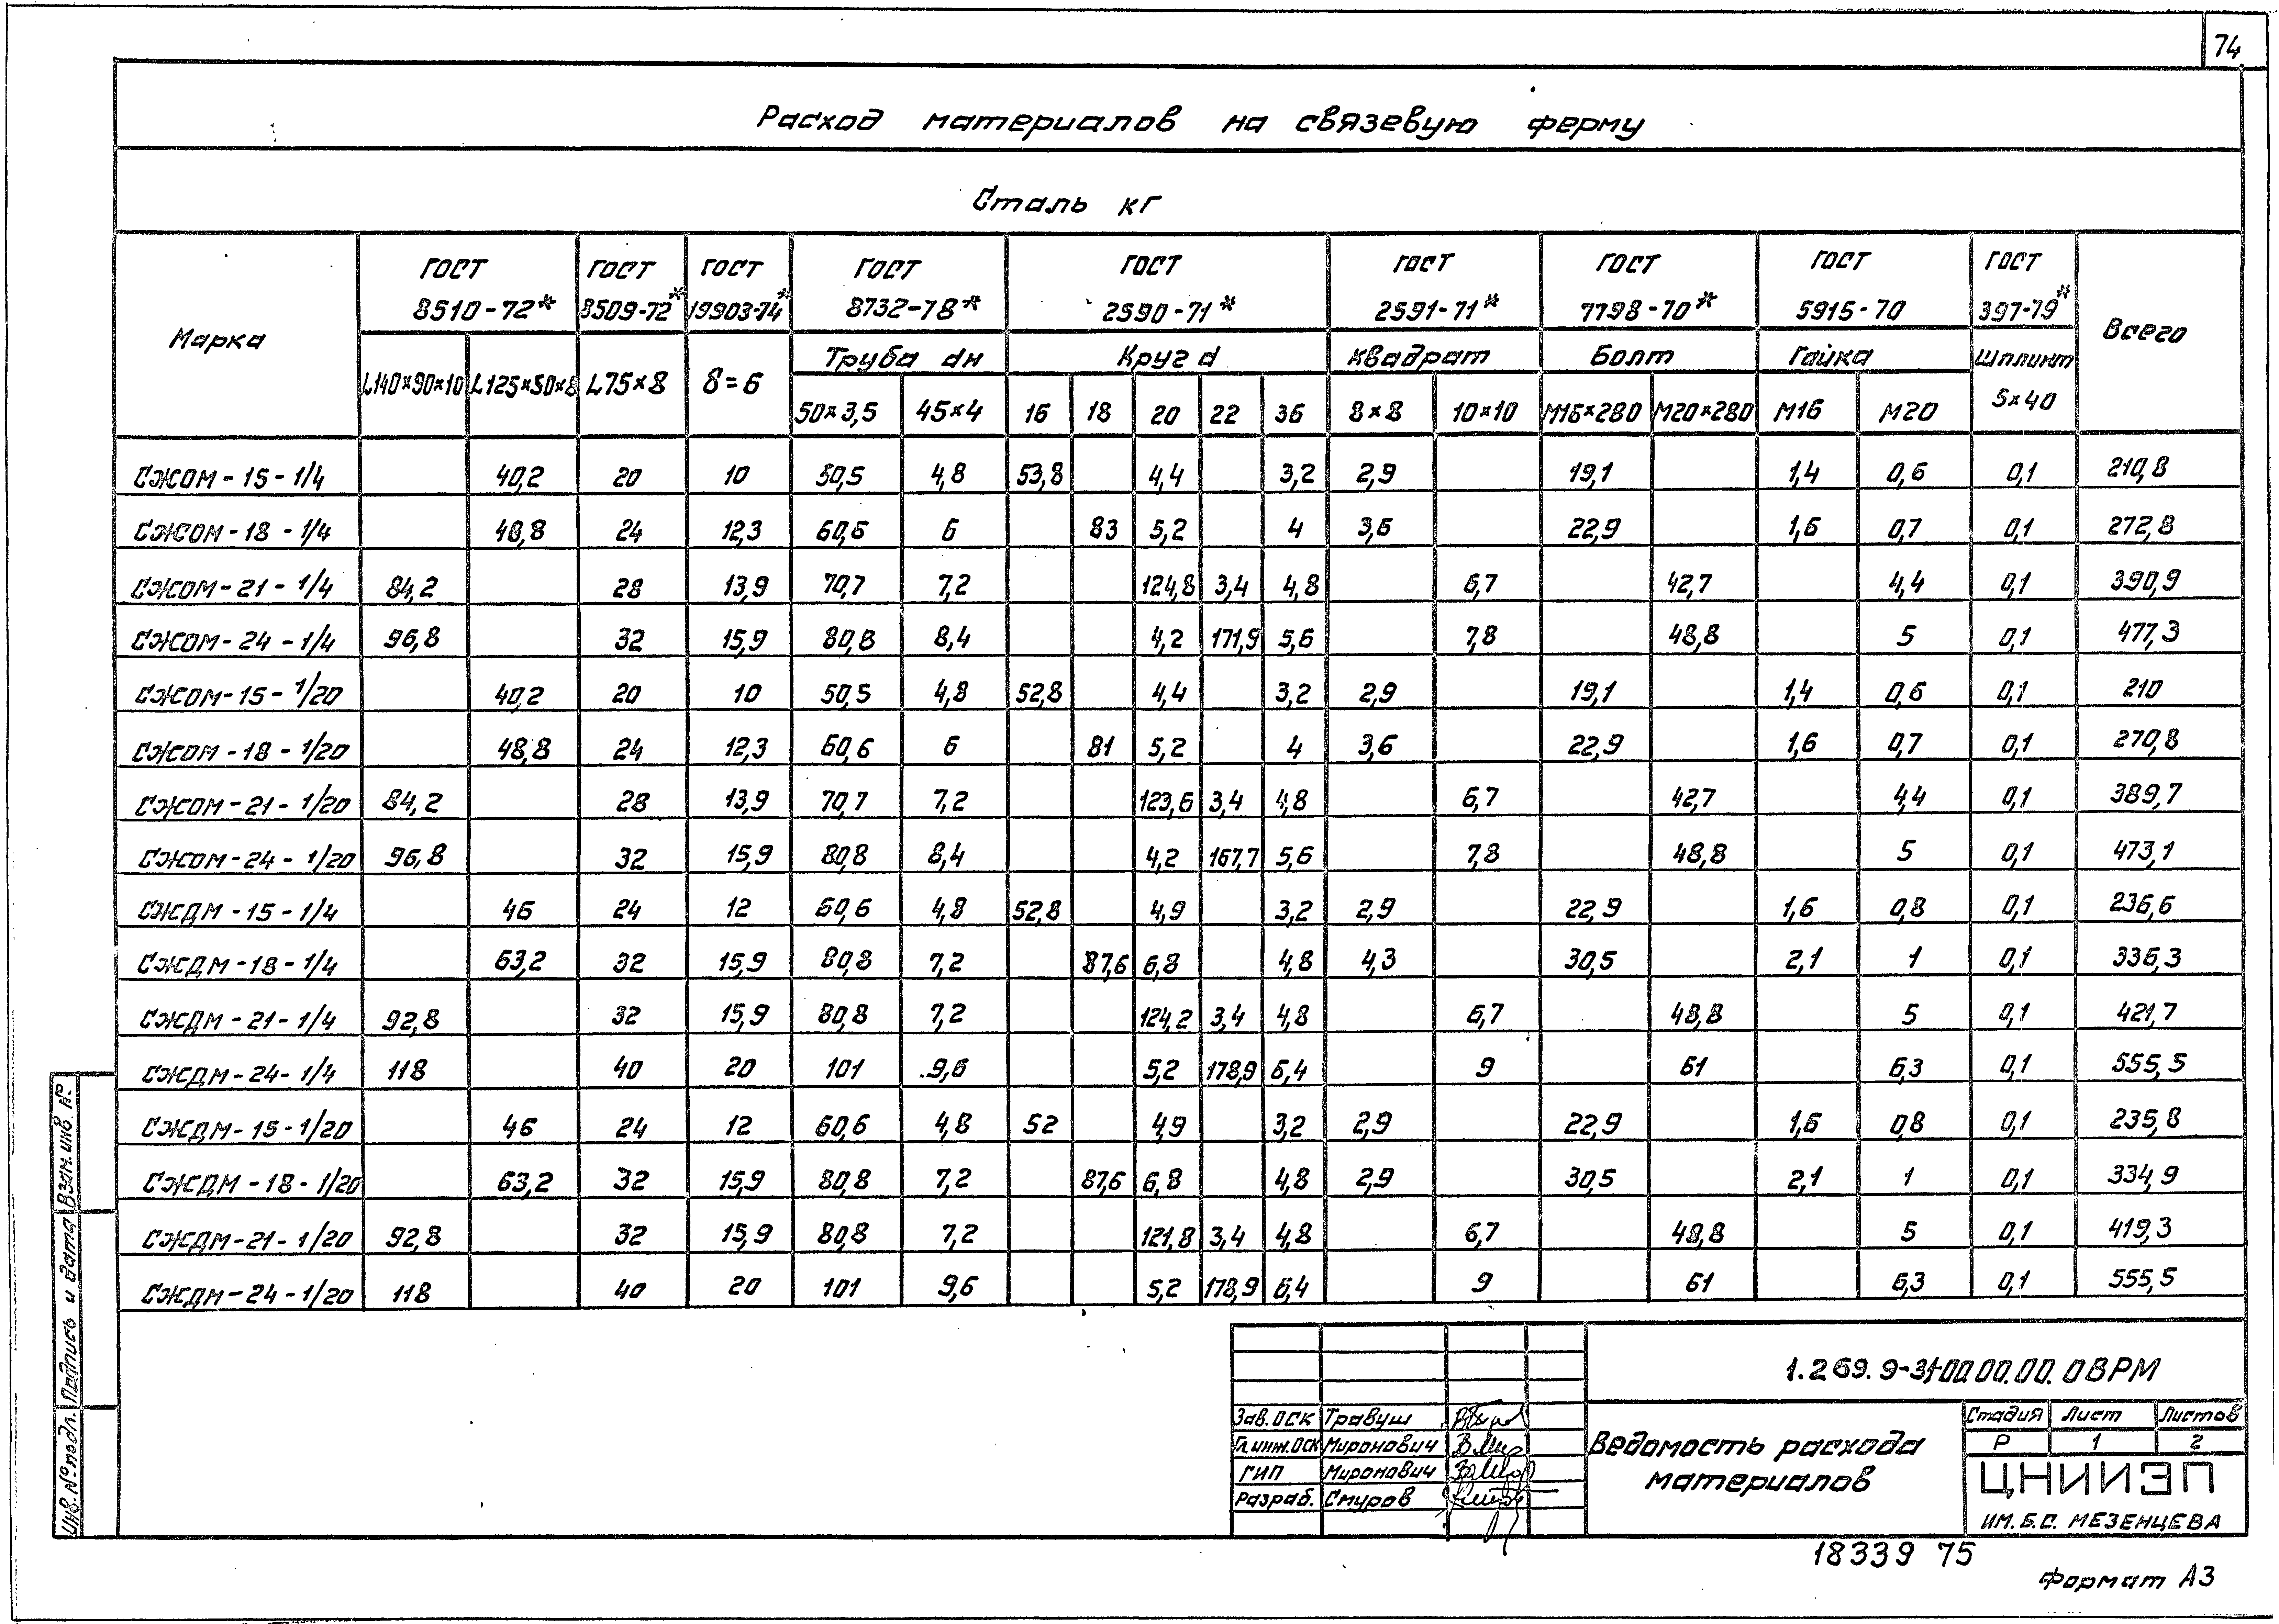 74
Расход материалов на связевую ферму
Сталь кг
Марка ГОСТ 8510-72* ГОСТ 8509-72* ГОСТ 19903-74* ГОСТ 8732-78* ГОСТ 2590-71* ГОСТ 2591-71* ГОСТ 7798-70* ГОСТ 5915-70 ГОСТ 397-79* Всего
L140×90×10 L125×50×8 L75×8 δ=6 Труба dн Круг d Квадрат Болт Гайка Шплинт 5×40
50×3,5 45×4 16 18 20 22 36 8×8 10×10 М16×280 М20×280 М16 М20
СЖОМ-15-1/4 40,2 20 10 50,5 4,8 53,8 4,4 3,2 2,9 19,1 1,4 0,6 0,1 210,8
СЖОМ-18-1/4 48,8 24 12,3 60,6 6 83 5,2 4 3,6 22,9 1,6 0,7 0,1 272,8
СЖОМ-21-1/4 84,2 28 13,9 70,7 7,2 124,8 3,4 4,8 6,7 42,7 4,4 0,1 390,9
СЖОМ-24-1/4 96,8 32 15,9 80,8 8,4 4,2 171,9 5,6 7,8 48,8 5 0,1 477,3
СЖОМ-15-1/20 40,2 20 10 50,5 4,8 52,8 4,4 3,2 2,9 19,1 1,4 0,6 0,1 210
СЖОМ-18-1/20 48,8 24 12,3 60,6 6 81 5,2 4 3,6 22,9 1,6 0,7 0,1 270,8
СЖОМ-21-1/20 84,2 28 13,9 70,7 7,2 123,6 3,4 4,8 6,7 42,7 4,4 0,1 389,7
СЖОМ-24-1/20 96,8 32 15,9 80,8 8,4 4,2 167,7 5,6 7,8 48,8 5 0,1 473,1
СЖДМ-15-1/4 46 24 12 60,6 4,8 52,8 4,9 3,2 2,9 22,9 1,6 0,8 0,1 236,6
СЖДМ-18-1/4 63,2 32 15,9 80,8 7,2 87,6 6,8 4,8 4,3 30,5 2,1 1 0,1 336,3
СЖДМ-21-1/4 92,8 32 15,9 80,8 7,2 124,2 3,4 4,8 6,7 48,8 5 0,1 421,7
СЖДМ-24-1/4 118 40 20 101 9,6 5,2 178,9 6,4 9 61 6,3 0,1 555,5
СЖДМ-15-1/20 46 24 12 60,6 4,8 52 4,9 3,2 2,9 22,9 1,6 0,8 0,1 235,8
СЖДМ-18-1/20 63,2 32 15,9 80,8 7,2 87,6 6,8 4,8 2,9 30,5 2,1 1 0,1 334,9
СЖДМ-21-1/20 92,8 32 15,9 80,8 7,2 121,8 3,4 4,8 6,7 48,8 5 0,1 419,3
СЖДМ-24-1/20 118 40 20 101 9,6 5,2 178,9 6,4 9 61 6,3 0,1 555,5
Взам. инв. №
Подпись и дата
Инв. № подл.
1.269.9-3.1-00.00.00.0ВРМ
Зав. ОСК Травуш
Гл. инж. ОСК Миронович
ГИП Миронович
Разраб. Смуров
Ведомость расхода
материалов
Стадия Лист Листов
Р 1 2
ЦНИИЭП
ИМ. Б.С. МЕЗЕНЦЕВА
18339 75
Формат А3